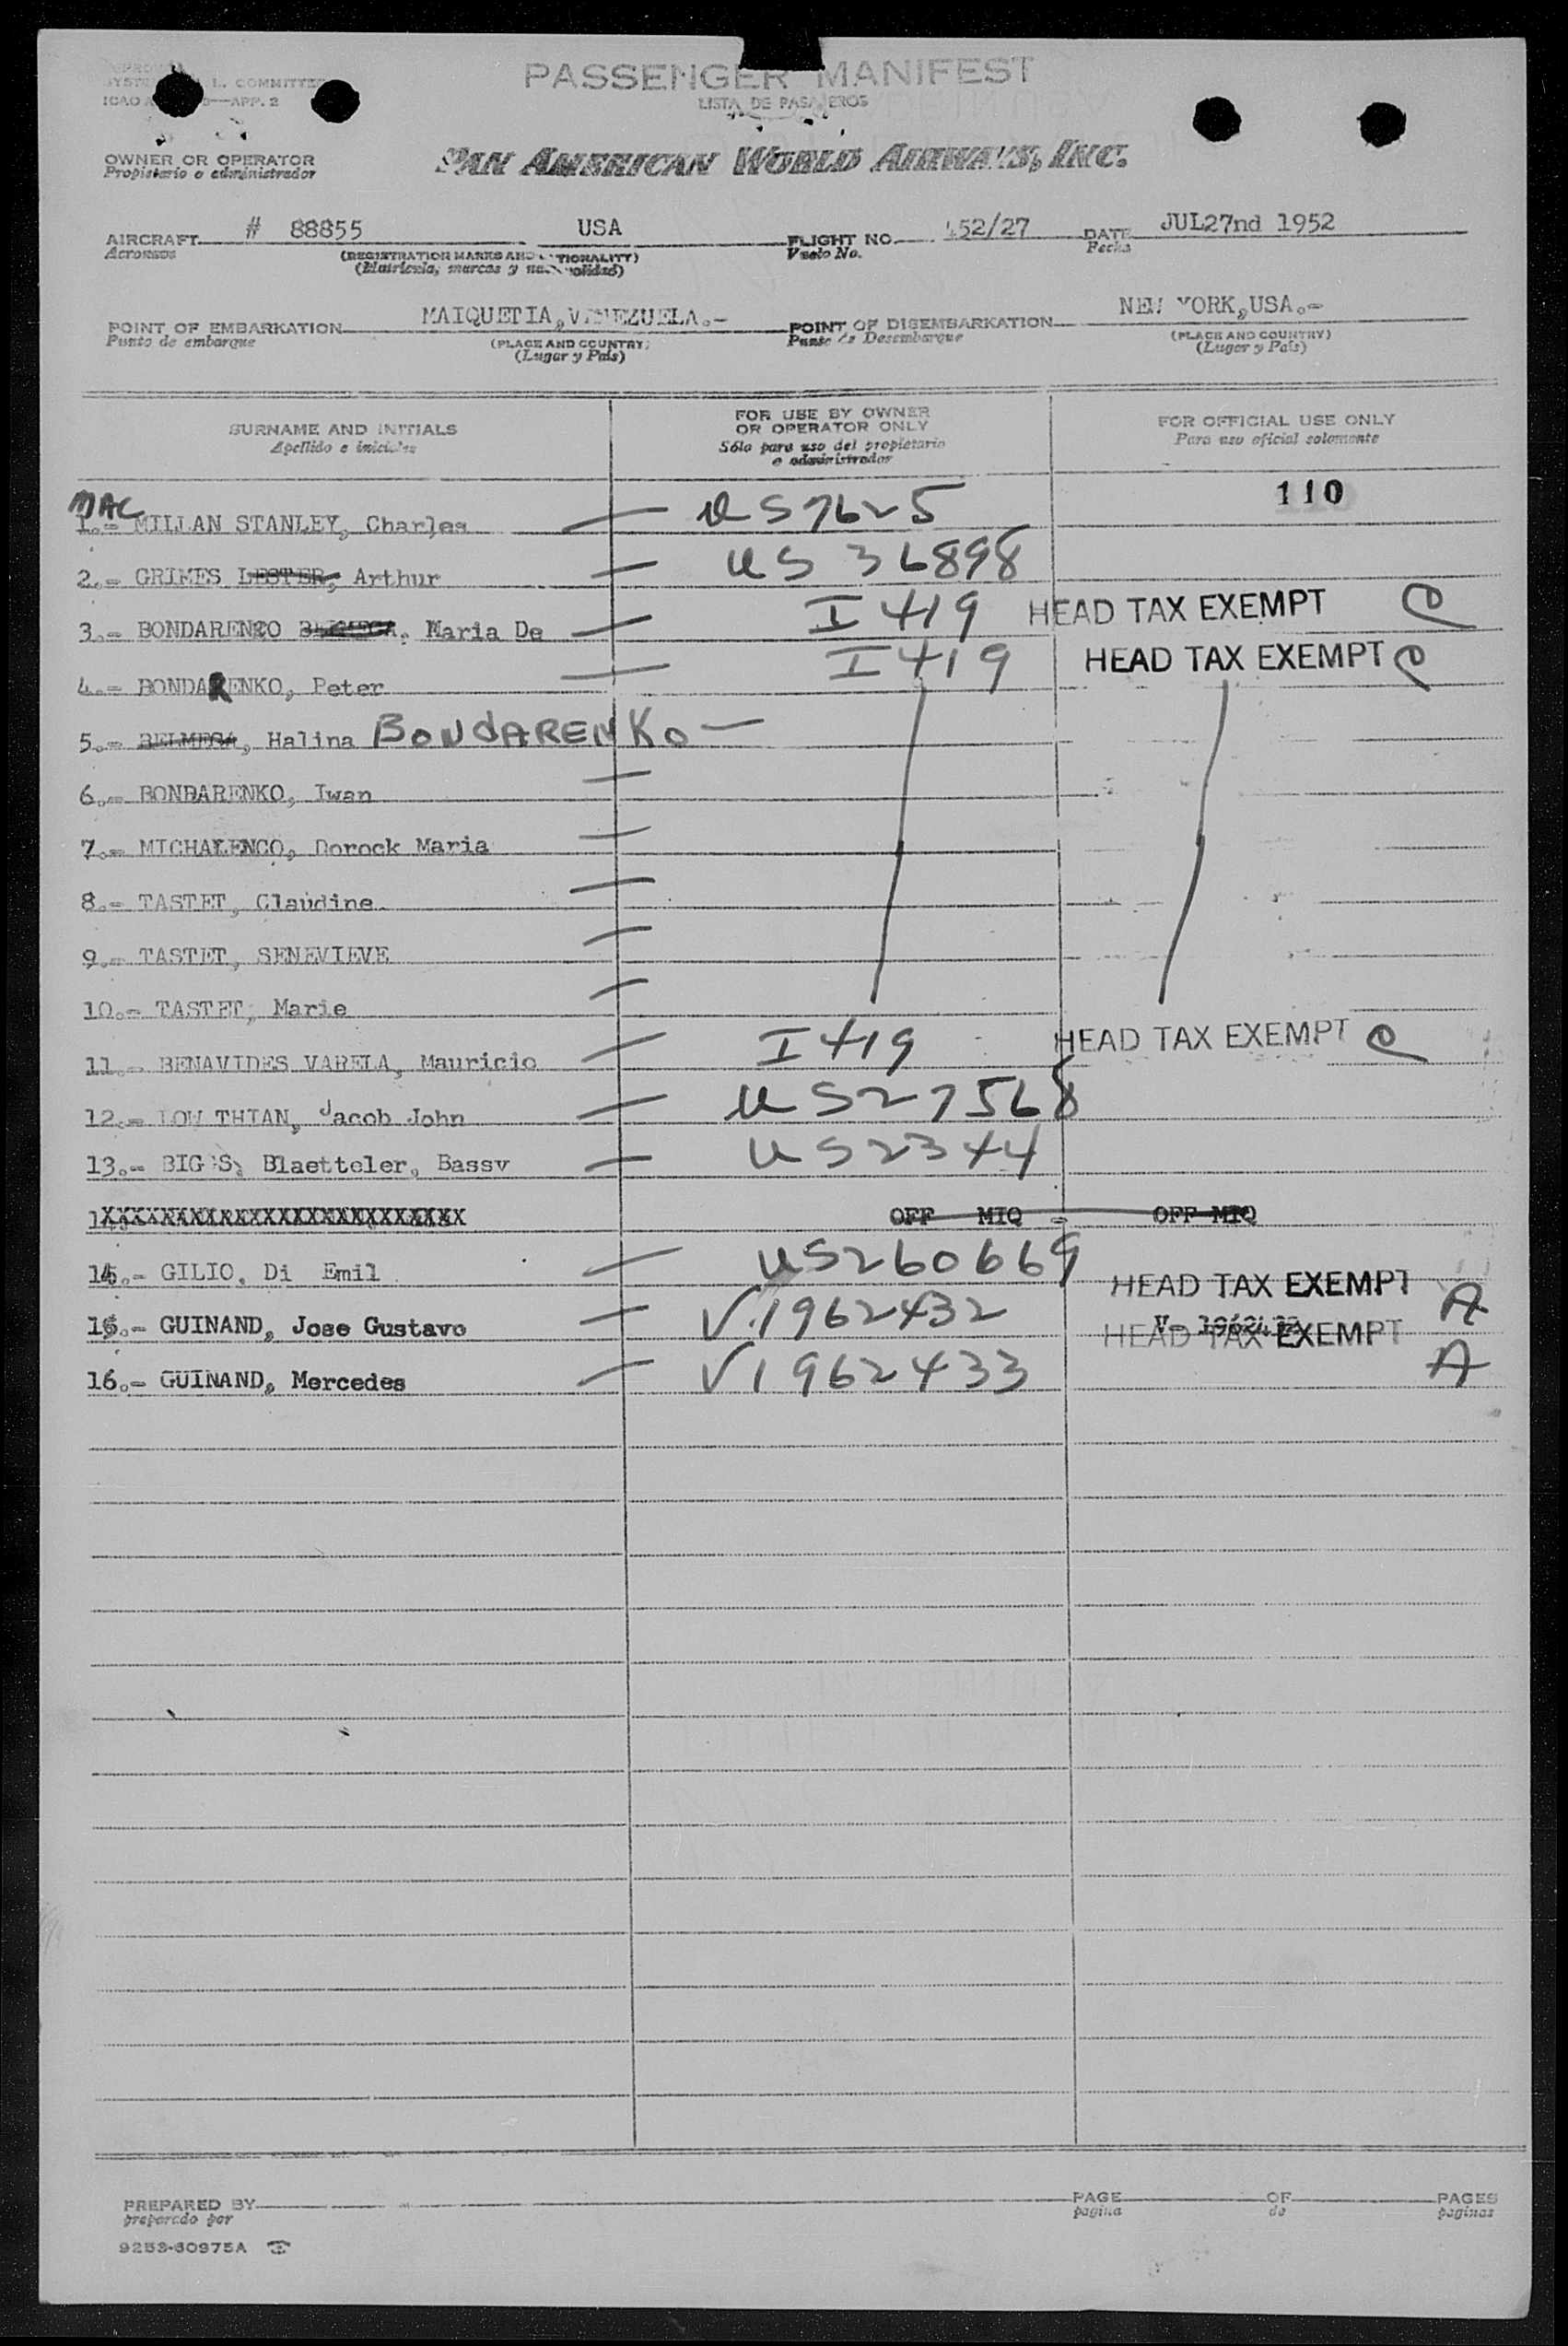 PASSENGER MANIFEST
LISTA DE PASAJEROS
L. COMMITTEE
ICAO APP. 2
OWNER OR OPERATOR
Propietario o administrador
PAN AMERICAN WORLD AIRWAYS, INC.
AIRCRAFT # 88855 USA FLIGHT NO. 452/27 DATE JUL27nd 1952
(REGISTRATION MARKS AND NATIONALITY) Vuelo No. Fecha
(Matrícula, marcas y nacionalidad)
POINT OF EMBARKATION MAIQUETIA, VENEZUELA.- POINT OF DISEMBARKATION NEW YORK, USA.-
Punto de embarque (PLACE AND COUNTRY) Punto de Desembarque (PLACE AND COUNTRY)
(Lugar y País) (Lugar y País)
SURNAME AND INITIALS FOR USE BY OWNER OR OPERATOR ONLY FOR OFFICIAL USE ONLY
Apellido e iniciales Sólo para uso del propietario o administrador Para uso oficial solamente
110
MAC
1.- MILLAN STANLEY, Charles — US 7625
2.- GRIMES LESTER, Arthur — US 36898
3.- BONDARENCO, Maria De — I 419 HEAD TAX EXEMPT
4.- BONDARENKO, Peter — I 419 HEAD TAX EXEMPT
5.- BELMEGA, Halina BONDARENKO —
6.- BONDARENKO, Iwan —
7.- MICHALENCO, Dorock Maria —
8.- TASTET, Claudine —
9.- TASTET, SENEVIEVE —
10.- TASTET, Marie —
11.- BENAVIDES VARELA, Mauricio — I 419 HEAD TAX EXEMPT
12.- LOW THIAN, Jacob John — US 27568
13.- BIGGS, Blaetteler, Bassv — US 2344
XXXXXXXXXXXXXXXXXXXXXXXXX OFF MIQ - OFF MIQ
14.- GILIO, Di Emil — US 260669
15.- GUINAND, Jose Gustavo — V 1962432 HEAD TAX EXEMPT A
16.- GUINAND, Mercedes — V 1962433 HEAD TAX EXEMPT A
PREPARED BY PAGE OF PAGES
preparado por pagina de paginas
9253-60975A